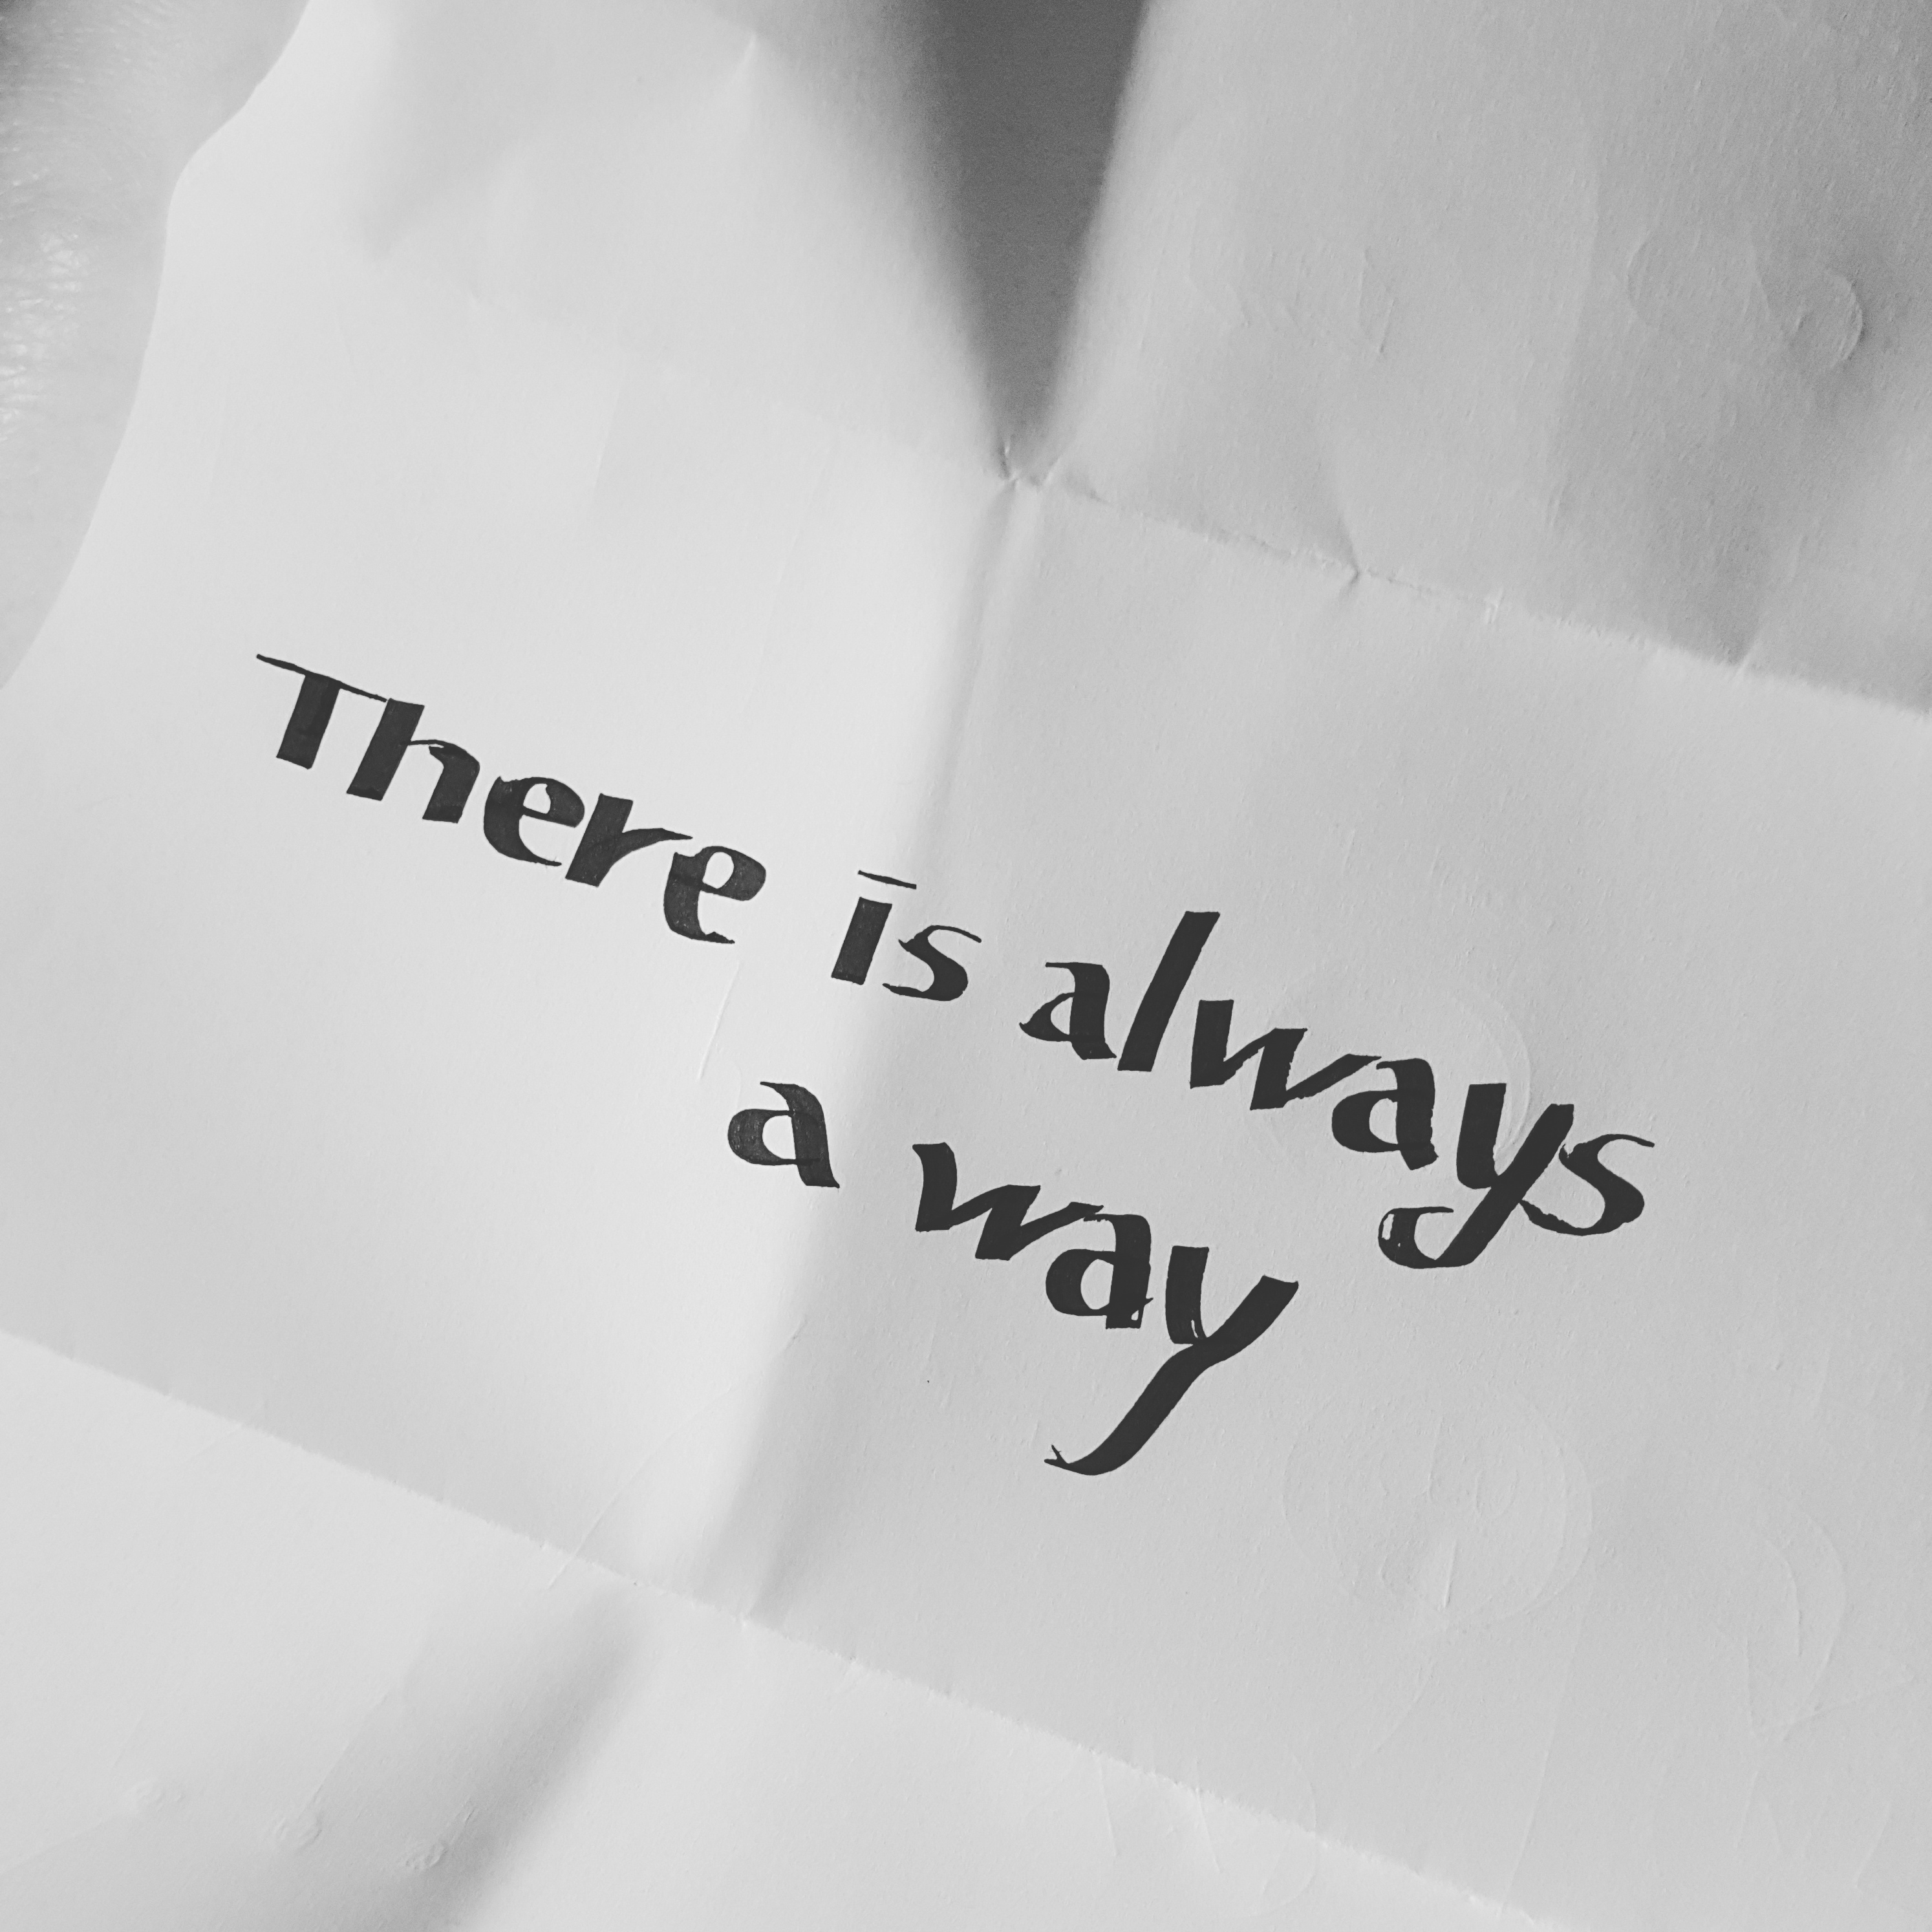 There is always
a way